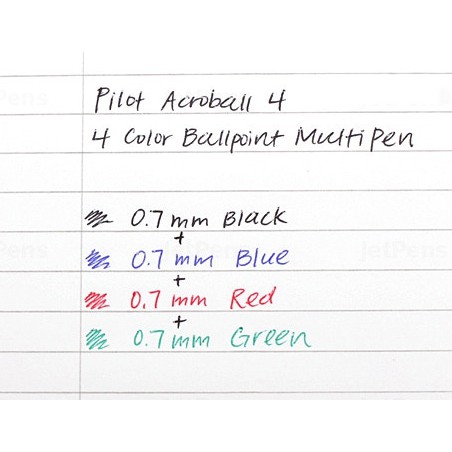 Pilot Acroball 4
4 Color Ballpoint Multi Pen
0.7 mm Black
+
0.7 mm Blue
+
0.7 mm Red
+
0.7 mm Green
JetPens
JetPens
JetPens